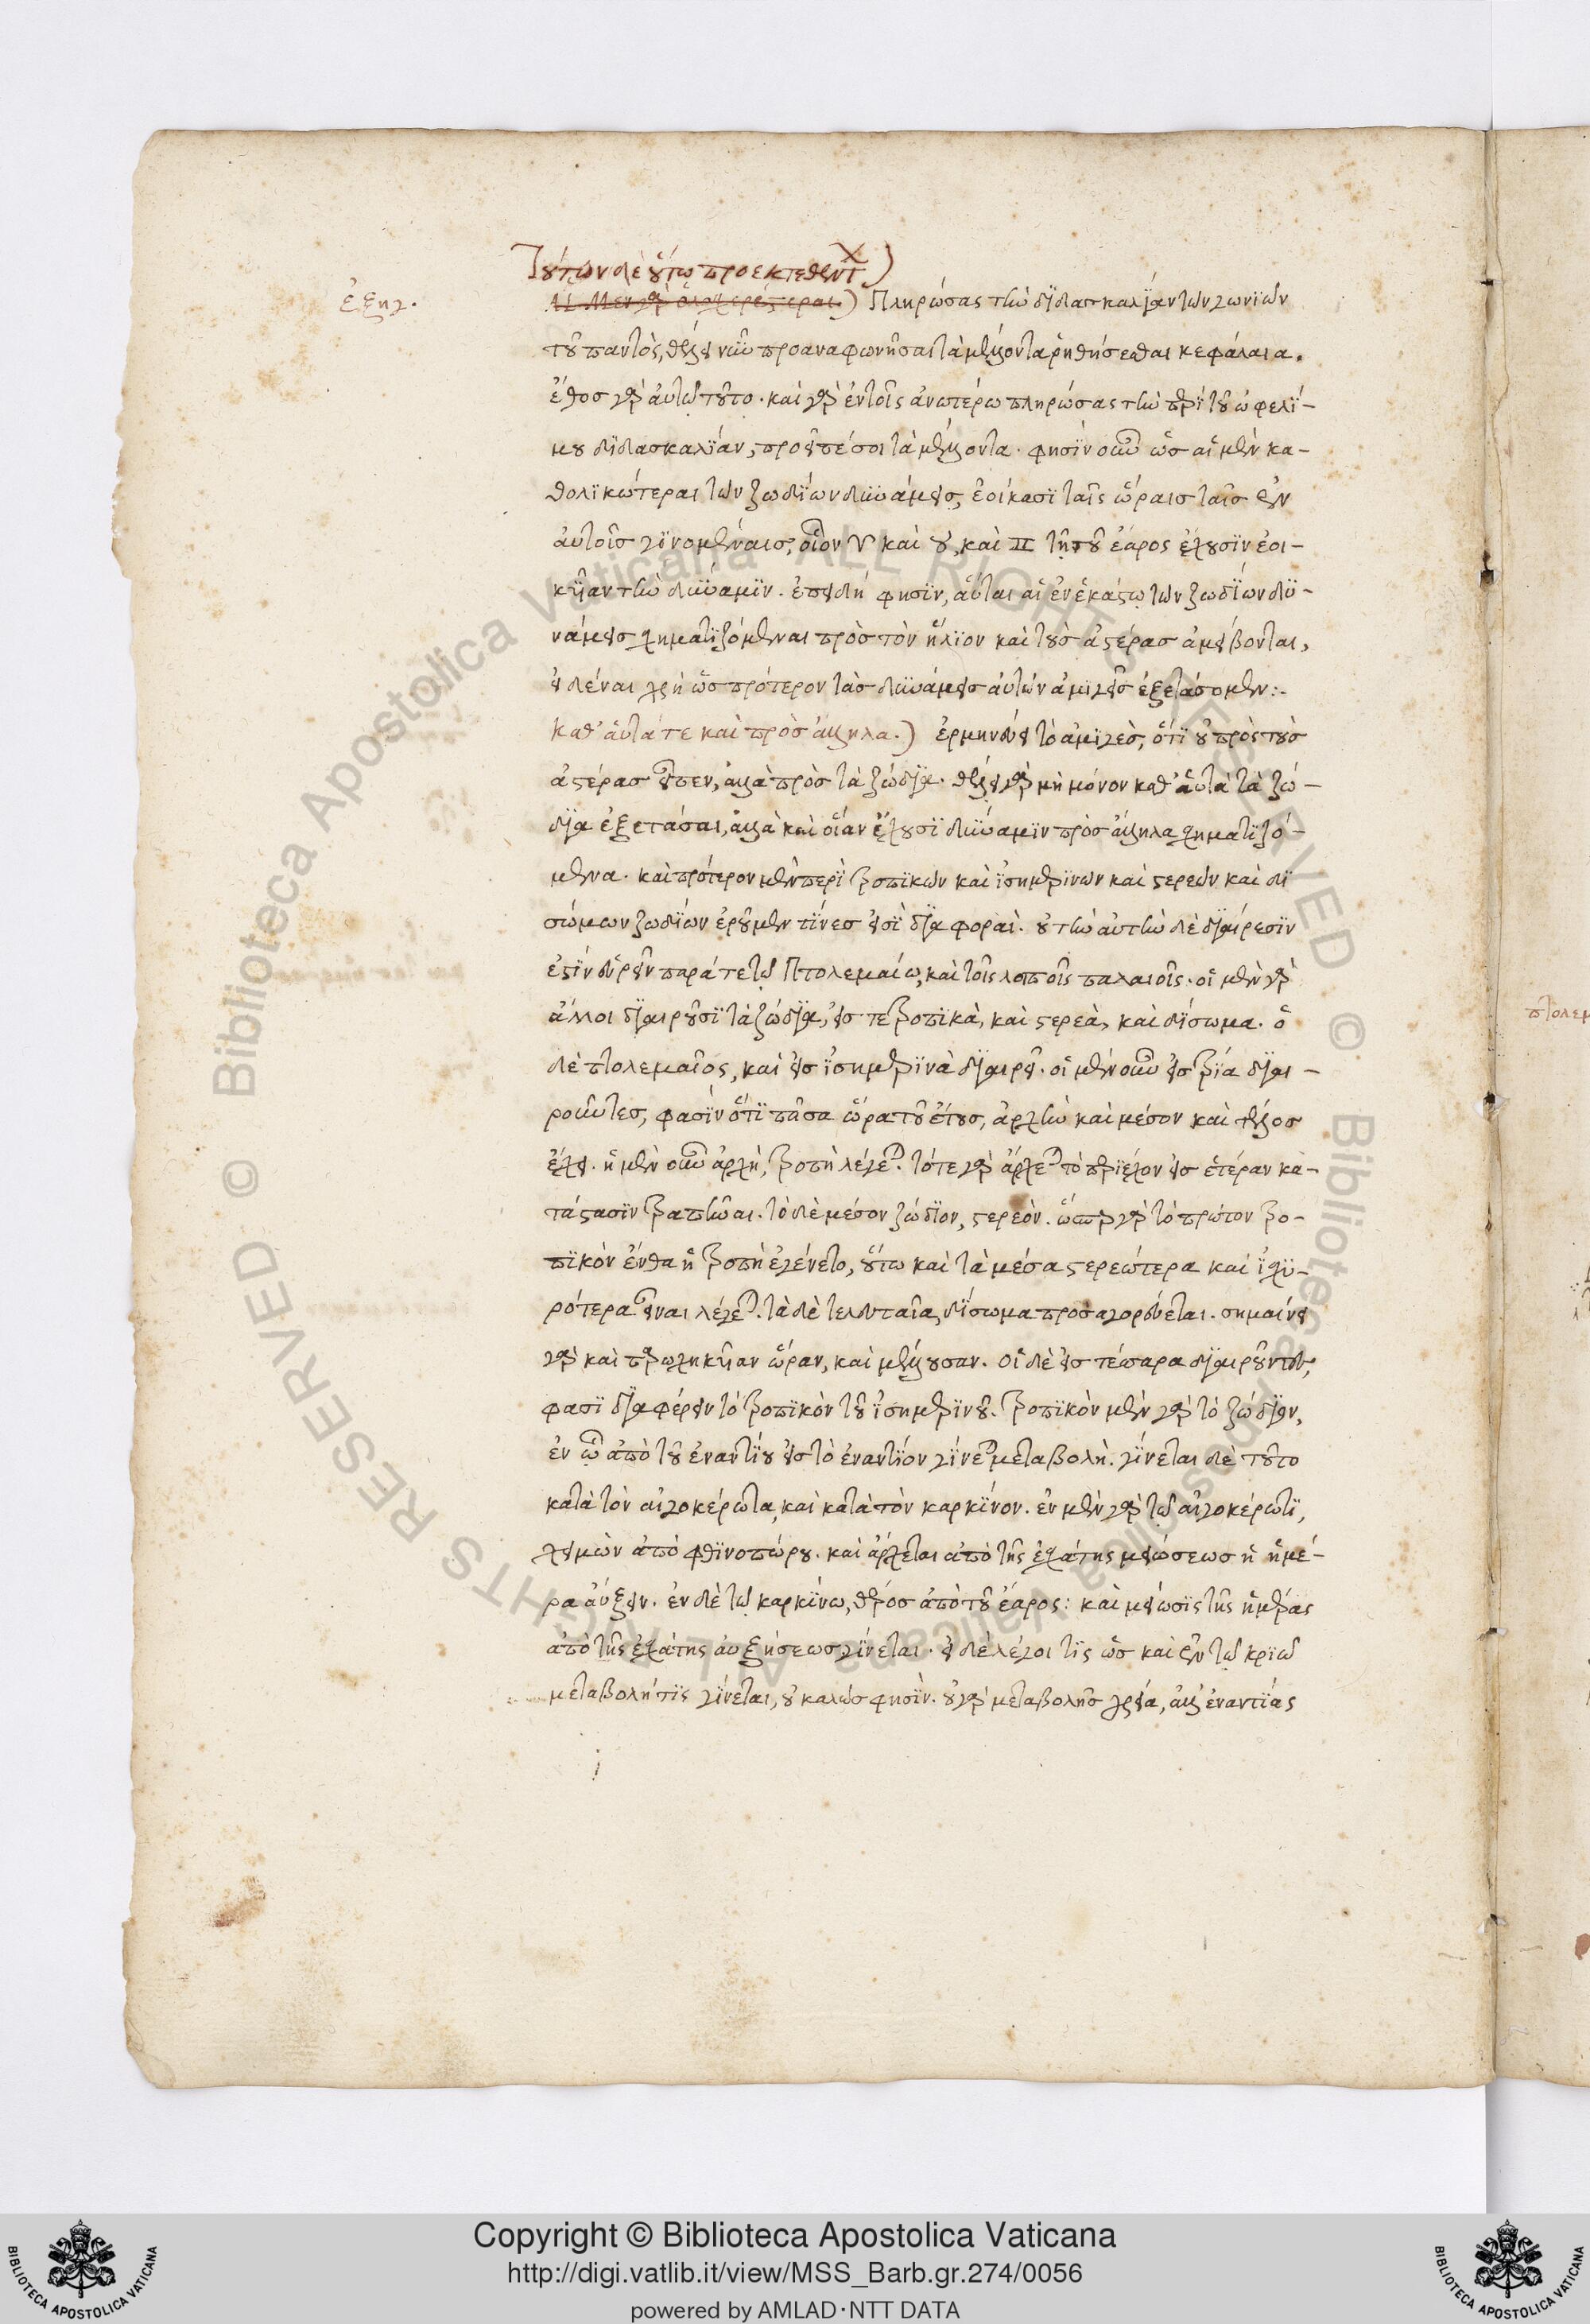 Τούτων δὲ οὕτω προεκτεθέντων)
ἐξηγ.
Αἱ μὲν γὰρ ὁλοσχερέστεραι) Πληρώσας τὴν διδασκαλίαν τῶν γωνιῶν
τοῦ παντὸς, θέλει νῦν προαναφωνῆσαι τὰ μέλλοντα ῥηθήσεσθαι κεφάλαια.
ἔθος γὰρ αὐτῷ τοῦτο. καὶ γὰρ ἐν τοῖς ἀνωτέρω πληρώσας τὴν περὶ τοῦ ὠφελί-
μου διδασκαλίαν, προϋπέσοι τὰ μέλλοντα. φησὶν οὖν ὡς αἱ μὲν κα-
θολικώτεραι τῶν ζωδίων δυνάμεις, ἐοίκασι ταῖς ὥραις ταῖς ἐν
αὐτοῖς γινομέναις, οἷον ♈ καὶ ♉, καὶ ♊ τῇ τοῦ ἔαρος ἔχουσιν ἐοι-
κυῖαν τὴν δύναμιν. ἐπειδή φησιν, αὗται αἱ ἐν ἑκάστῳ τῶν ζωδίων δυ-
νάμεις σχηματιζόμεναι πρὸς τὸν ἥλιον καὶ τοὺς ἀστέρας ἀμείβονται,
εἰδέναι χρὴ ὡς πρότερον τὰς δυνάμεις αὐτῶν ἀμιγεῖς ἐξετάσομεν:.
Καθ' αὑτά τε καὶ πρὸς ἄλληλα.) ἑρμηνεύει τὸ ἀμιγὲς, ὅτι οὐ πρὸς τοὺς
ἀστέρας εἶπεν, ἀλλὰ πρὸς τὰ ζώδια. θέλει γὰρ μὴ μόνον καθ' αὑτὰ τὰ ζώ-
δια ἐξετάσαι, ἀλλὰ καὶ οἵαν ἔχουσι δύναμιν πρὸς ἄλληλα σχηματιζό-
μενα. καὶ πρότερον μὲν περὶ τροπικῶν καὶ ἰσημερινῶν καὶ στερεῶν καὶ δι
σώμων ζωδίων ἐροῦμεν τίνες εἰσὶ διαφοραί. οὐ τὴν αὐτὴν δὲ διαίρεσιν
ἐστὶν εὑρεῖν παρά τε τῷ Πτολεμαίῳ, καὶ τοῖς λοιποῖς παλαιοῖς. οἱ μὲν γὰρ
ἄλλοι διαιροῦσι τὰ ζώδια, εἴς τε τροπικὰ, καὶ στερεὰ, καὶ δίσωμα. ὁ
δὲ πτολεμαῖος, καὶ εἰς ἰσημερινὰ διαιρεῖ. οἱ μὲν οὖν εἰς τρία διαι-
ροῦντες, φασὶν ὅτι πᾶσα ὥρα τοῦ ἔτους, ἀρχὴν καὶ μέσον καὶ τέλος
ἔχει. ἡ μὲν οὖν ἀρχὴ, τροπὴ λέγεται. τότε γὰρ ἄρχεται τὸ περιέχον εἰς ἑτέραν κα-
τάστασιν τραπῆναι. τὸ δὲ μέσον ζώδιον, στερεόν. ὥσπερ γὰρ τὸ πρῶτον τρο-
πικὸν ἔνθα ἡ τροπὴ ἐγένετο, οὕτω καὶ τὰ μέσα στερεώτερα καὶ ἰσχυ-
ρότερα εἶναι λέγεται. τὰ δὲ τελευταῖα, δίσωμα προσαγορεύεται. σημαίνει
γὰρ καὶ παρῳχηκυῖαν ὥραν, καὶ μέλλουσαν. οἱ δὲ εἰς τέσσαρα διαιροῦντες,
φασὶ διαφέρειν τὸ τροπικὸν τοῦ ἰσημερινοῦ. τροπικὸν μὲν γὰρ τὸ ζώδιον,
ἐν ᾧ ἀπὸ τοῦ ἐναντίου εἰς τὸ ἐναντίον γίνεται μεταβολή. γίνεται δὲ τοῦτο
κατὰ τὸν αἰγοκέρωτα, καὶ κατὰ τὸν καρκίνον. ἐν μὲν γὰρ τῷ αἰγοκέρωτι,
χειμὼν ἀπὸ φθινοπώρου. καὶ ἄρχεται ἀπὸ τῆς ἐσχάτης μειώσεως ἡ ἡμέ-
ρα αὔξειν. ἐν δὲ τῷ καρκίνῳ, θέρος ἀπὸ τοῦ ἔαρος: καὶ μείωσις τῆς ἡμέρας
ἀπὸ τῆς ἐσχάτης αὐξήσεως γίνεται. εἰ δὲ λέγοι τις ὡς καὶ ἐν τῷ κριῷ
μεταβολή τις γίνεται, οὐ καλῶς φησίν. οὐ γὰρ μεταβολῆς χρεία, ἀλλ' ἐναντίας
Copyright © Biblioteca Apostolica Vaticana
http://digi.vatlib.it/view/MSS_Barb.gr.274/0056
powered by AMLAD · NTT DATA